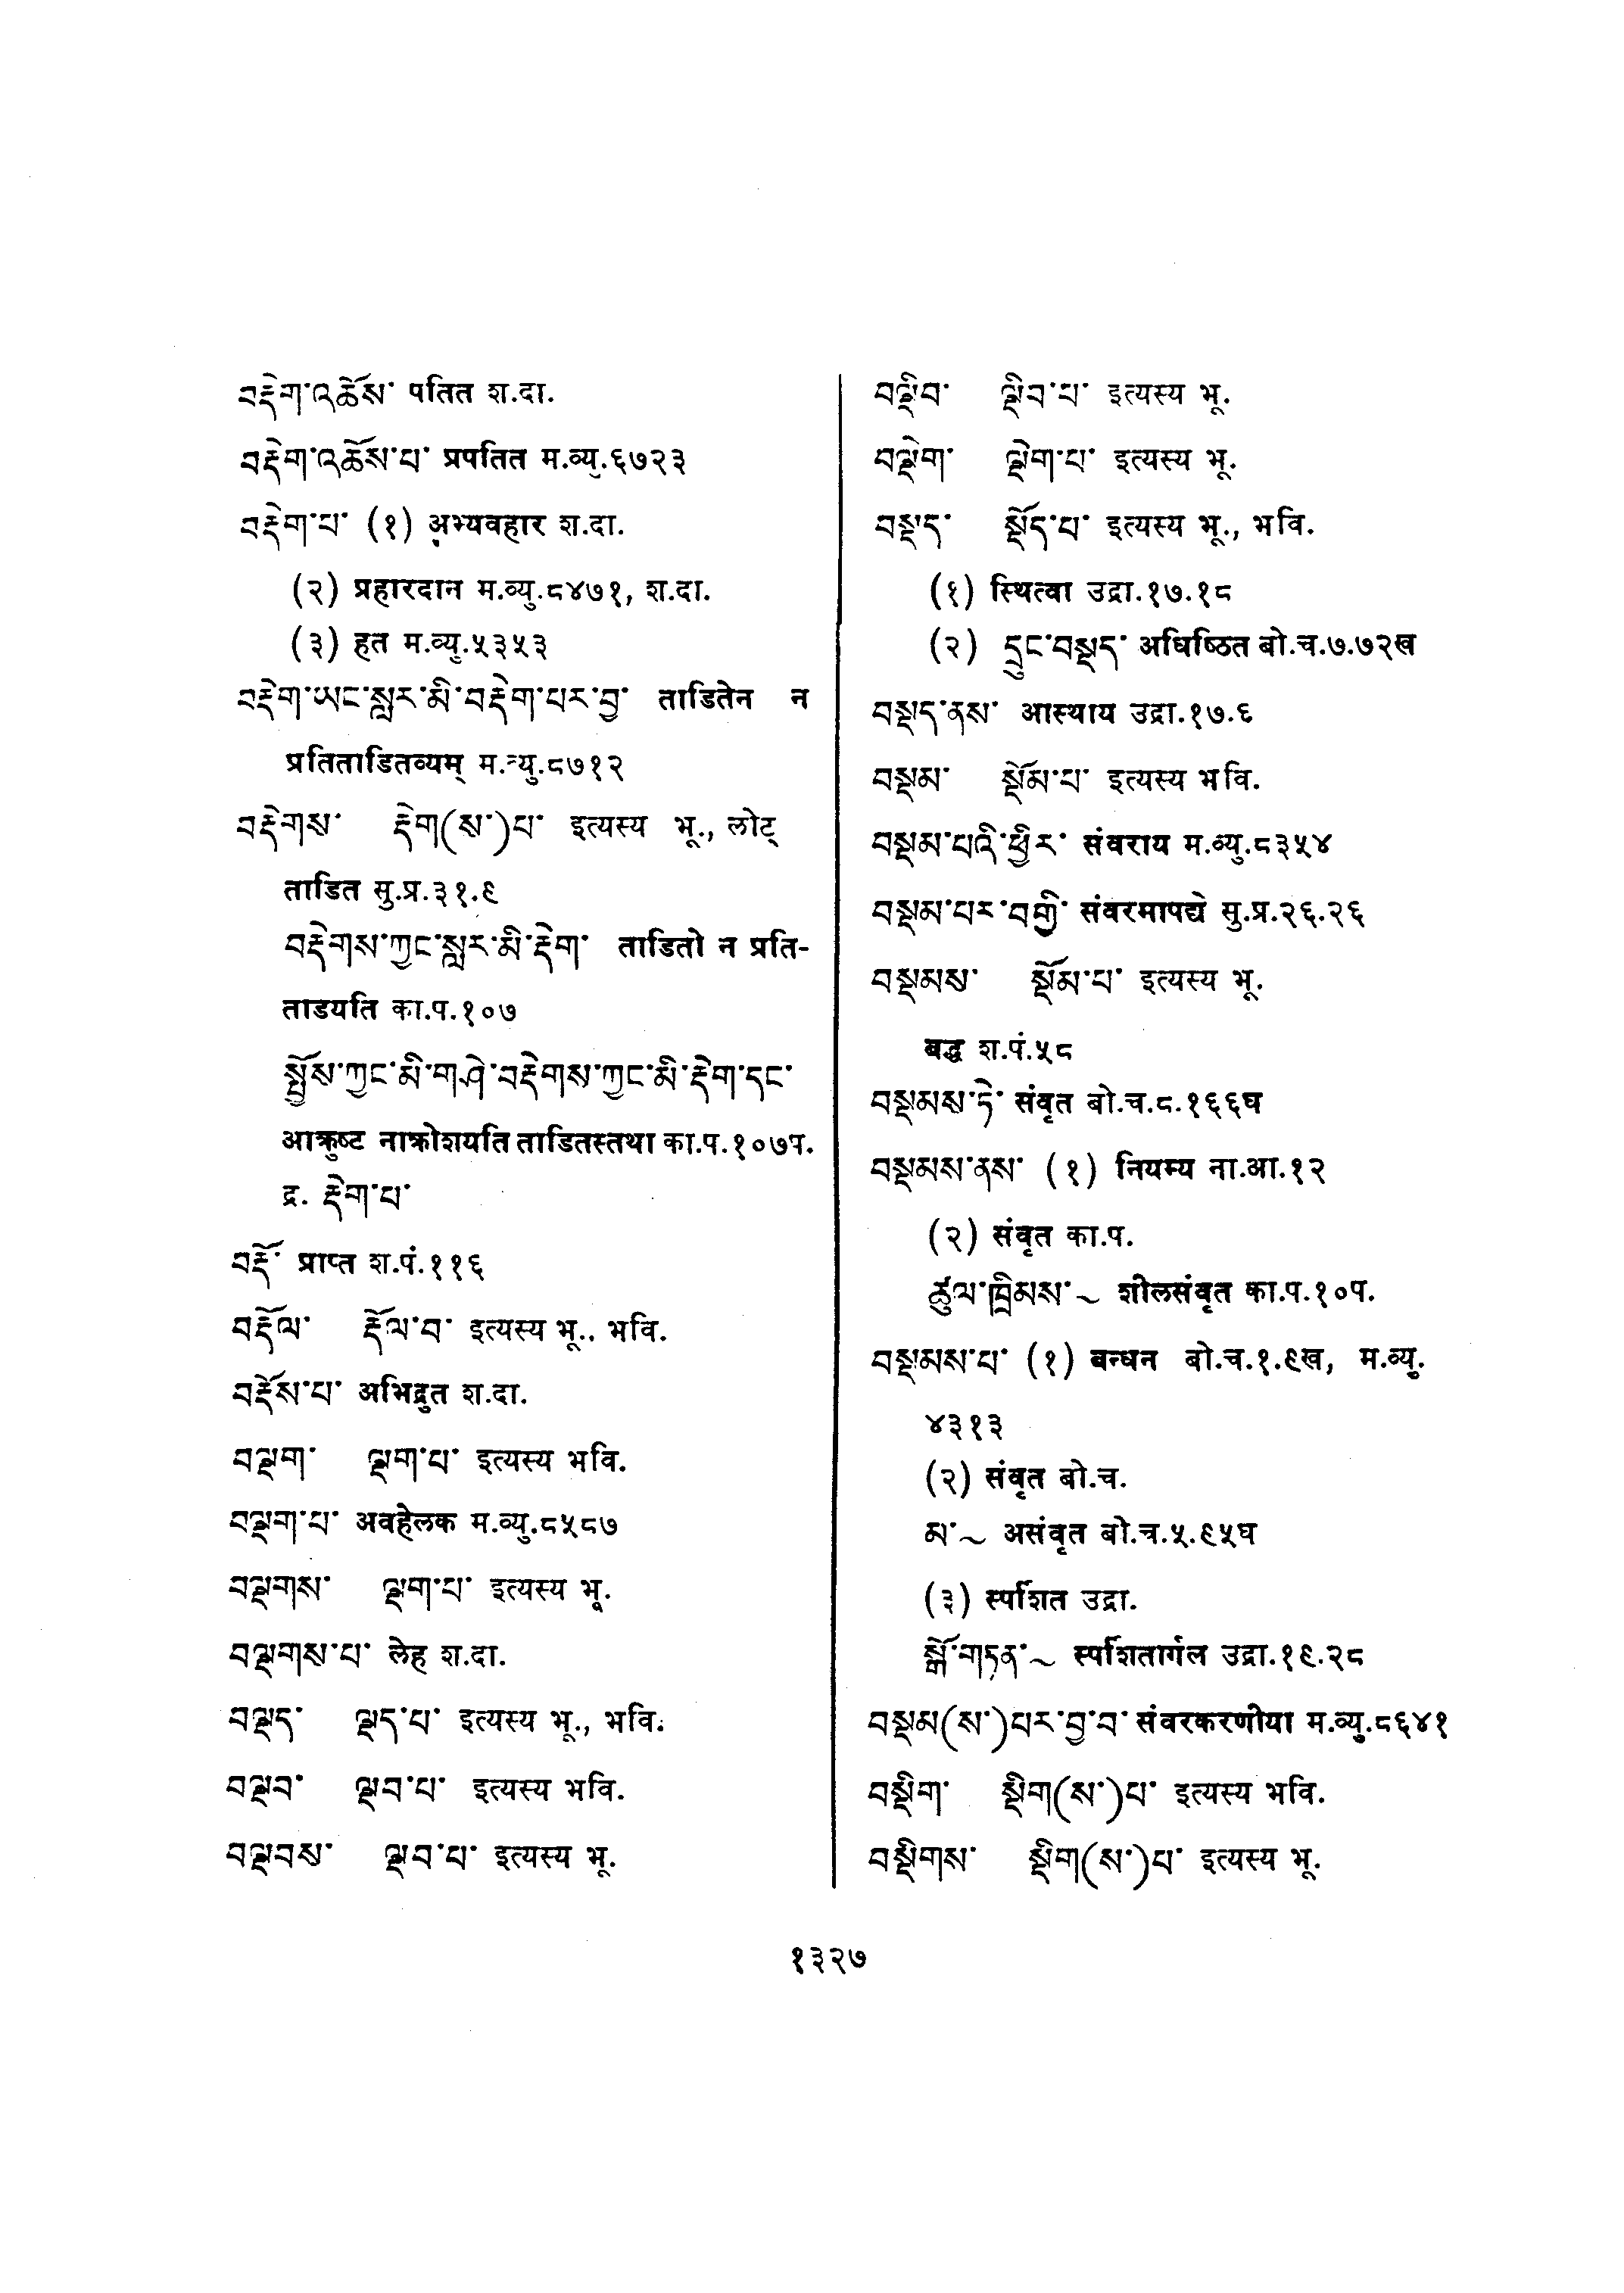 བརྡེག་འཆོས་ पतित श.दा.
བརྡེག་འཆོས་པ་ प्रपतित म.व्यु.६७२३
བརྡེག་པ་ (१) अभ्यवहार श.दा.
(२) प्रहारदान म.व्यु.८४७१, श.दा.
(३) हत म.व्यु.५३५३
བརྡེག་ཡང་སླར་མི་བརྡེག་པར་བྱ་ ताडितेन न
प्रतिताडितव्यम् म.व्यु.८७१२
བརྡེགས་ རྡེག(ས་)པ་ इत्यस्य भू., लोट्
ताडित सु.प्र.३१.९
བརྡེགས་ཀྱང་སླར་མི་རྡེག་ ताडितो न प्रति-
ताडयति का.प.१०७
སྤྱོས་ཀྱང་མི་གཤེ་བརྡེགས་ཀྱང་མི་རྡེག་དང་
आक्रुष्ट नाक्रोशयति ताडितस्तथा का.प.१०७प.
द्र. རྡེག་པ་
བརྡོ་ प्राप्त श.पं.११६
བརྡོལ་ རྡོལ་བ་ इत्यस्य भू., भवि.
བརྡོས་པ་ अभिद्रुत श.दा.
བལྡག་ ལྡག་པ་ इत्यस्य भवि.
བལྡག་པ་ अवहेलक म.व्यु.८५८७
བལྡགས་ ལྡག་པ་ इत्यस्य भू.
བལྡགས་པ་ लेह श.दा.
བལྡད་ ལྡད་པ་ इत्यस्य भू., भवि.
བལྡབ་ ལྡབ་པ་ इत्यस्य भवि.
བལྡབས་ ལྡབ་པ་ इत्यस्य भू.
བལྡིབ་ ལྡིབ་པ་ इत्यस्य भू.
བལྡེག་ ལྡེག་པ་ इत्यस्य भू.
བསྡད་ སྡོད་པ་ इत्यस्य भू., भवि.
(१) स्थित्वा उद्रा.१७.१८
(२) དྲུང་བསྡད་ अधिष्ठित बो.च.७.७२ख
བསྡད་ནས་ आस्थाय उद्रा.१७.६
བསྡམ་ སྡོམ་པ་ इत्यस्य भवि.
བསྡམ་པའི་ཕྱིར་ संवराय म.व्यु.८३५४
བསྡམ་པར་བགྱི་ संवरमापद्ये सु.प्र.२६.२६
བསྡམས་ སྡོམ་པ་ इत्यस्य भू.
बद्ध श.पं.५८
བསྡམས་ཏེ་ संवृत बो.च.८.१६६घ
བསྡམས་ནས་ (१) नियम्य ना.आ.१२
(२) संवृत का.प.
ཚུལ་ཁྲིམས་~ शीलसंवृत का.प.१०प.
བསྡམས་པ་ (१) बन्धन बो.च.१.९ख, म.व्यु.
४३१३
(२) संवृत बो.च.
མ་~ असंवृत बो.च.५.९५घ
(३) स्पर्शित उद्रा.
སྒོ་གཏན་~ स्पर्शितार्गल उद्रा.१९.२८
བསྡམ(ས་)པར་བྱ་བ་ संवरकरणीया म.व्यु.८६४१
བསྡིག་ སྡིག(ས་)པ་ इत्यस्य भवि.
བསྡིགས་ སྡིག(ས་)པ་ इत्यस्य भू.
१३२७